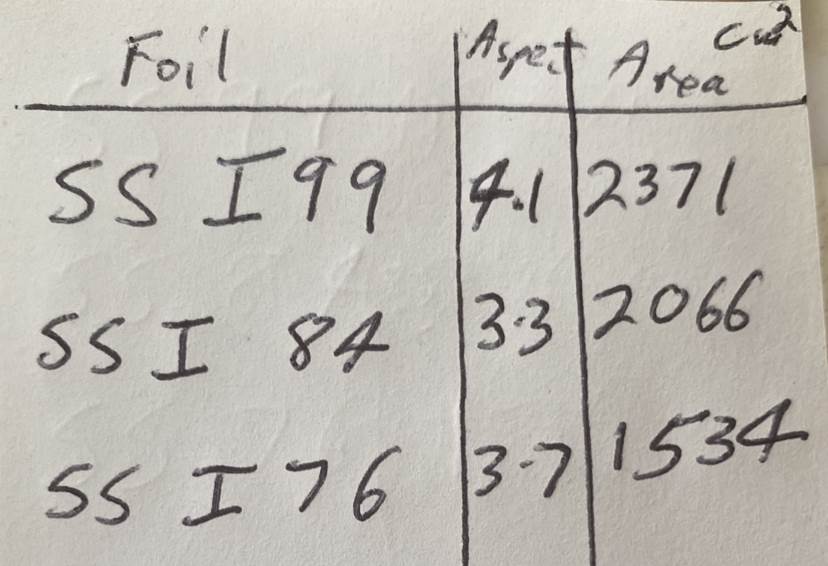 Foil Aspect Area cm²
SS I 99 4.1 2371
SS I 84 3.3 2066
SS I 76 3.7 1534